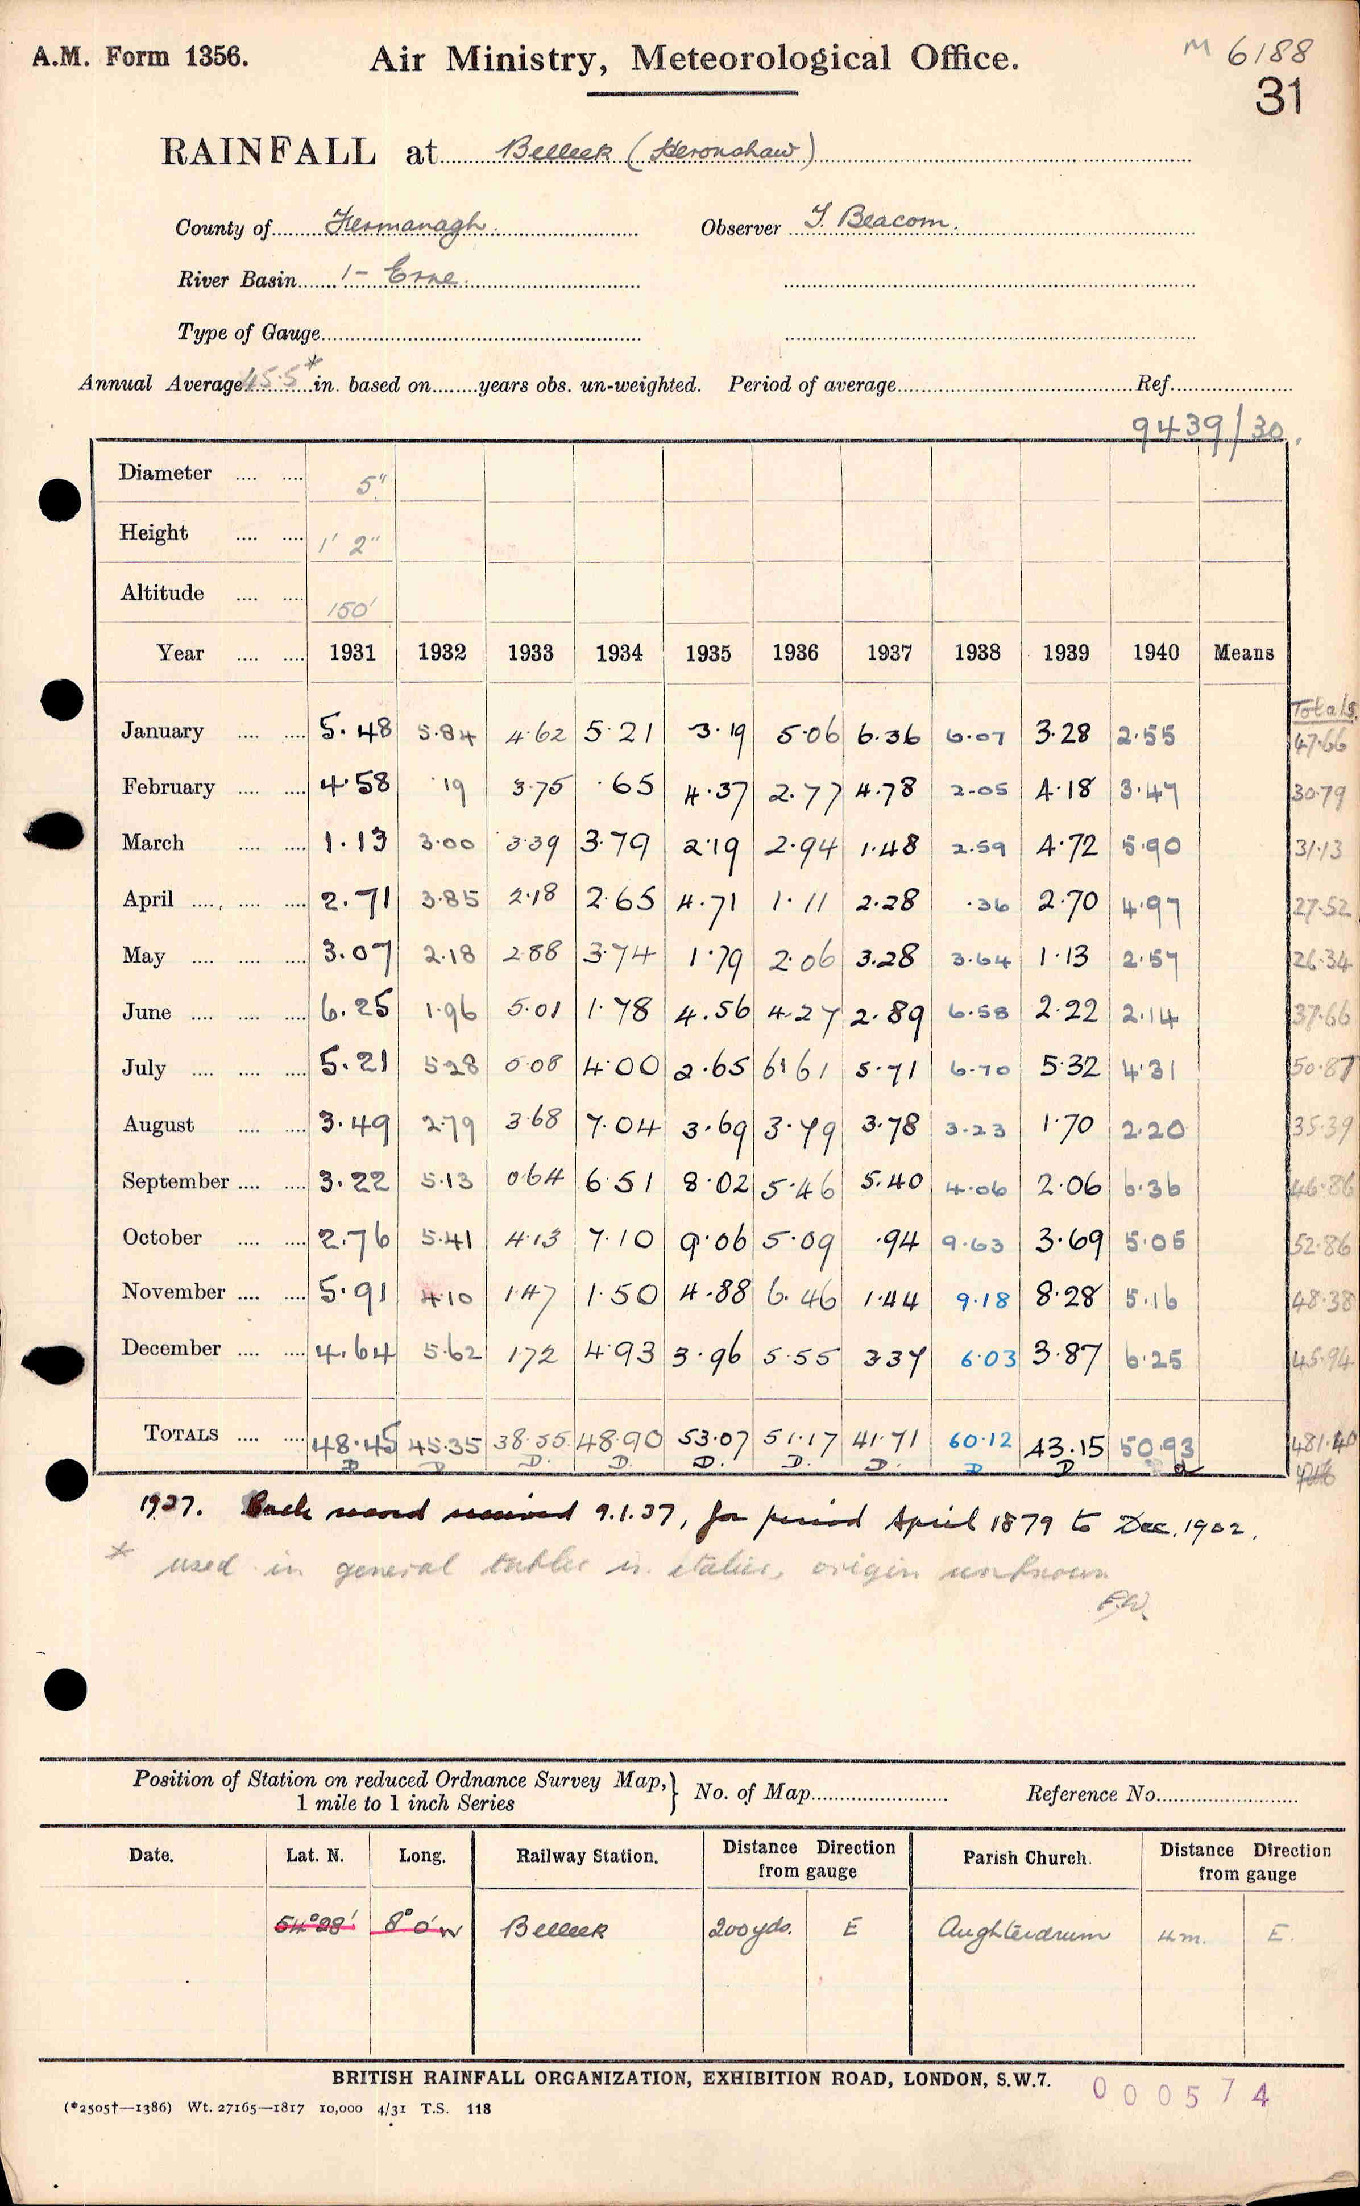 A.M. Form 1356. Air Ministry, Meteorological Office. M 6188
31
RAINFALL at Belleek (Heronshaw)
County of Fermanagh. Observer T. Beacom.
River Basin 1 - Erne.
Type of Gauge
Annual Average 45.5* in. based on years obs. un-weighted. Period of average Ref.
9439/30.
Diameter 5"
Height 1' 2"
Altitude 150'
Year 1931 1932 1933 1934 1935 1936 1937 1938 1939 1940 Means Totals
January 5.48 5.84 4.62 5.21 3.19 5.06 6.36 6.07 3.28 2.55 47.66
February 4.58 .19 3.75 .65 4.37 2.77 4.78 2.05 4.18 3.47 30.79
March 1.13 3.00 3.39 3.79 2.19 2.94 1.48 2.59 4.72 5.90 31.13
April 2.71 3.85 2.18 2.65 4.71 1.11 2.28 .36 2.70 4.97 27.52
May 3.07 2.18 2.88 3.74 1.79 2.06 3.28 3.64 1.13 2.57 26.34
June 6.25 1.96 5.01 1.78 4.56 4.27 2.89 6.58 2.22 2.14 37.66
July 5.21 5.28 5.08 4.00 2.65 6.61 5.71 6.70 5.32 4.31 50.87
August 3.49 2.79 3.68 7.04 3.69 3.79 3.78 3.23 1.70 2.20 35.39
September 3.22 5.13 0.64 6.51 8.02 5.46 5.40 4.06 2.06 6.36 46.86
October 2.76 5.41 4.13 7.10 9.06 5.09 .94 9.63 3.69 5.05 52.86
November 5.91 4.10 1.47 1.50 4.88 6.46 1.44 9.18 8.28 5.16 48.38
December 4.64 5.62 1.72 4.93 3.96 5.55 3.37 6.03 3.87 6.25 45.94
TOTALS 48.45 45.35 38.55 48.90 53.07 51.17 41.71 60.12 43.15 50.93 481.40
D D D. D. D. D. D. D D
1937. Back record received 9.1.37, for period April 1879 to Dec. 1902.
* used in general tables in italics, origin unknown
F.W.
Position of Station on reduced Ordnance Survey Map, 1 mile to 1 inch Series } No. of Map Reference No.
Date. Lat. N. Long. Railway Station. Distance Direction from gauge Parish Church. Distance Direction from gauge
54°28' 8°0'W Belleek 200yds. E Aughterdrum 4m. E.
BRITISH RAINFALL ORGANIZATION, EXHIBITION ROAD, LONDON, S.W.7.
000574
(*2505†—1386) Wt. 27165—1817 10,000 4/31 T.S. 118